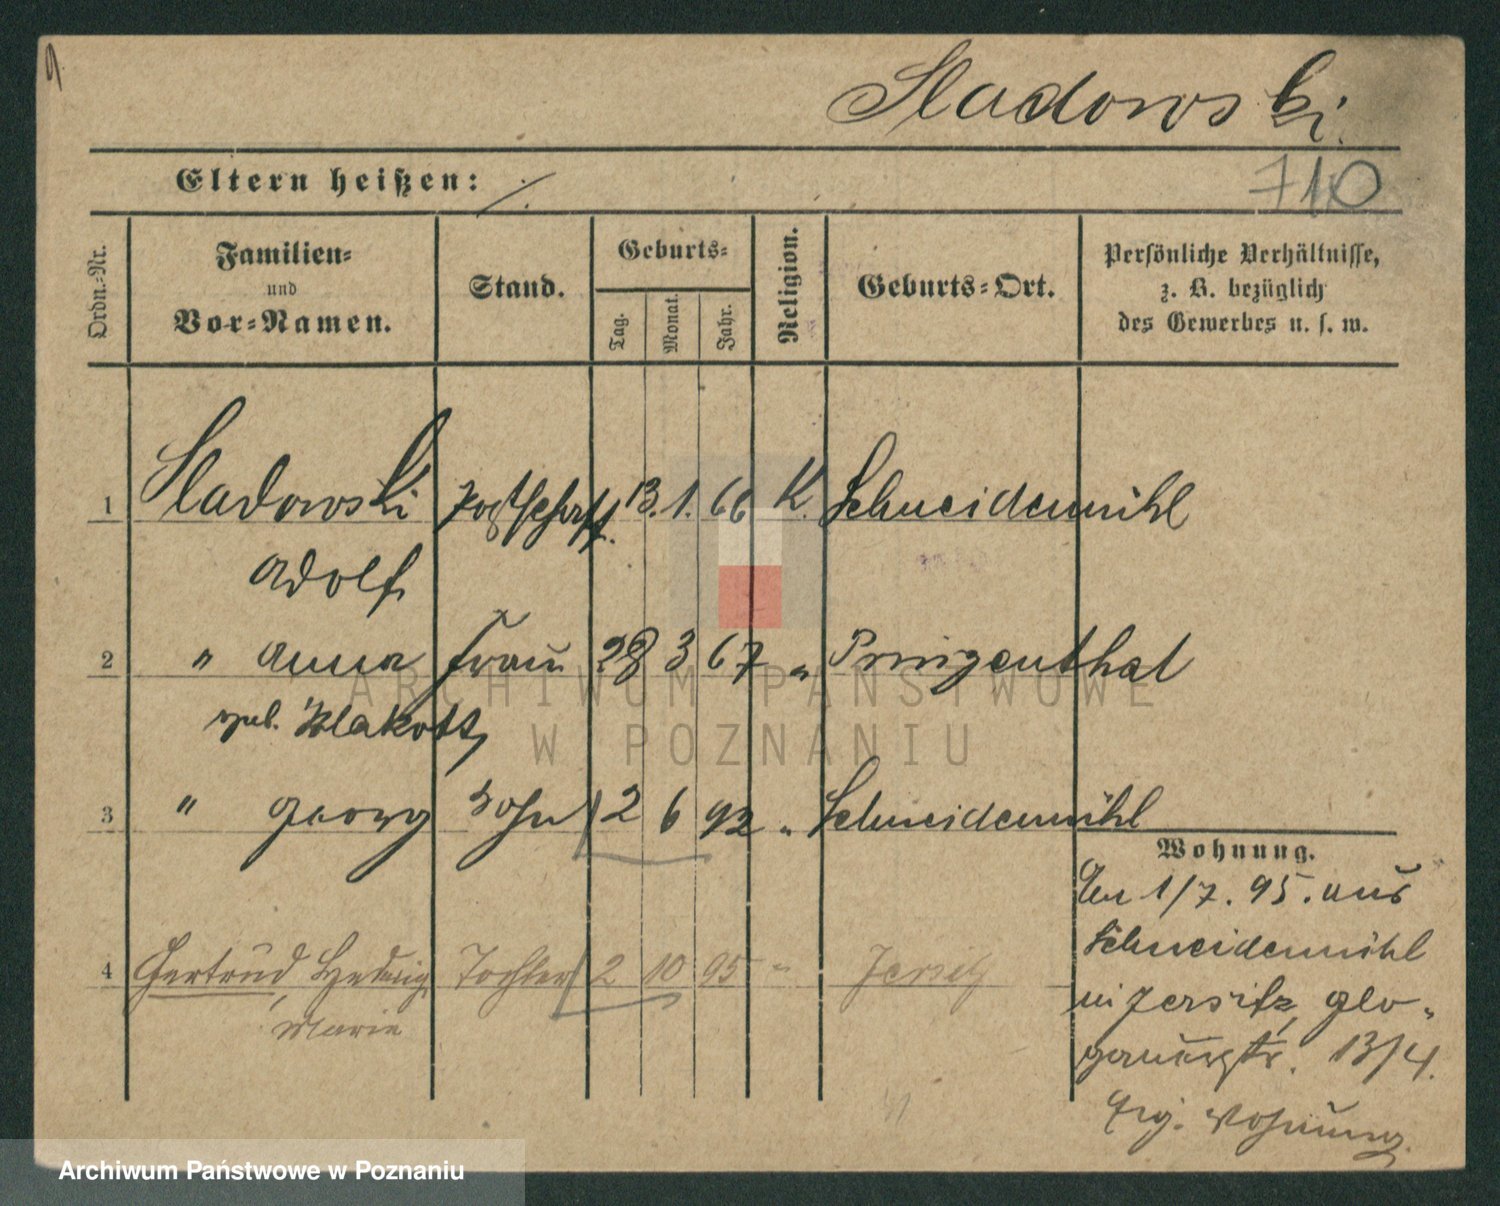 Sladowski.
710
Eltern heißen: ·/.
Ordn.-Nr.
Familien-
und
Vor-Namen.
Stand.
Geburts-
Tag.
Monat.
Jahr.
Religion.
Geburts-Ort.
Persönliche Verhältnisse,
z. B. bezüglich
des Gewerbes u. s. w.
1 Sladowski 13. 1. 66 K. Schneidemühl
Adolf
2 " Anna Frau 28 3 67 " Prinzenthal
geb.
3 " Georg Sohn 2 6 92 " Schneidemühl
Wohnung.
Am 1/7. 95. aus
Schneidemühl
in Jersitz, Glo-
gauerstr. 13/4.
Wohnung.
4 Gertrud, Hedwig Tochter 2 10 95 " Jersitz
Marie
ARCHIWUM PAŃSTWOWE
W POZNANIU
Archiwum Państwowe w Poznaniu